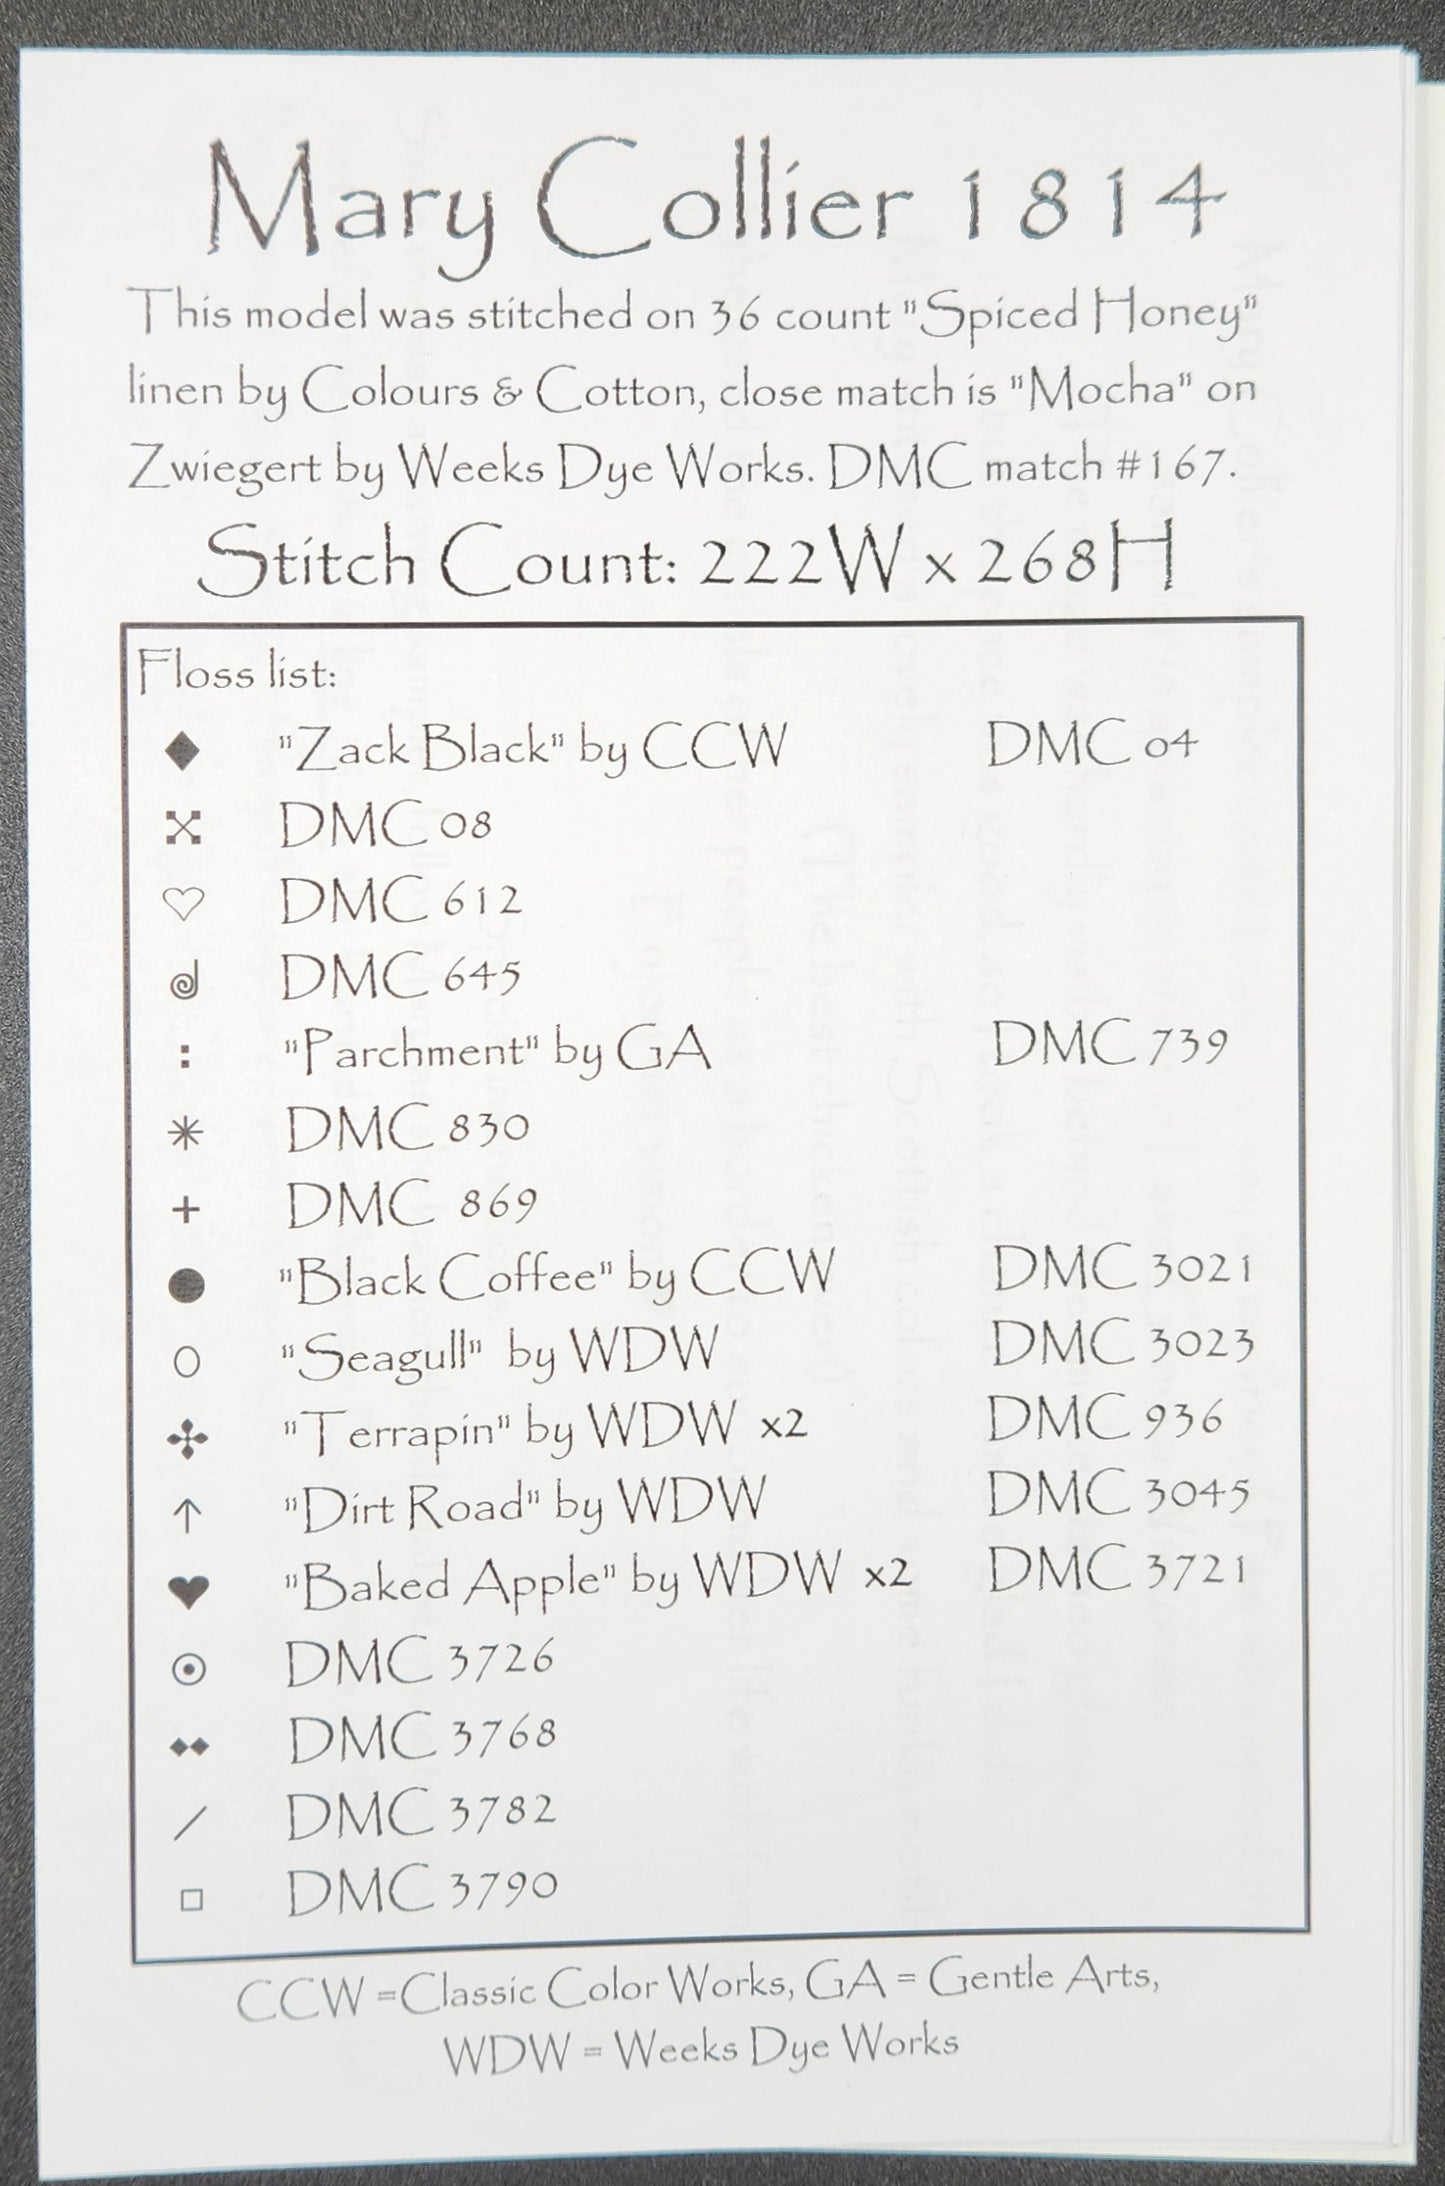 Mary Collier 1814
This model was stitched on 36 count "Spiced Honey"
linen by Colours & Cotton, close match is "Mocha" on
Zwiegert by Weeks Dye Works. DMC match #167.
Stitch Count: 222W x 268H
Floss list:
"Zack Black" by CCW DMC 04
DMC 08
DMC 612
DMC 645
"Parchment" by GA DMC 739
DMC 830
DMC 869
"Black Coffee" by CCW DMC 3021
"Seagull" by WDW DMC 3023
"Terrapin" by WDW x2 DMC 936
"Dirt Road" by WDW DMC 3045
"Baked Apple" by WDW x2 DMC 3721
DMC 3726
DMC 3768
DMC 3782
DMC 3790
CCW =Classic Color Works, GA = Gentle Arts,
WDW = Weeks Dye Works